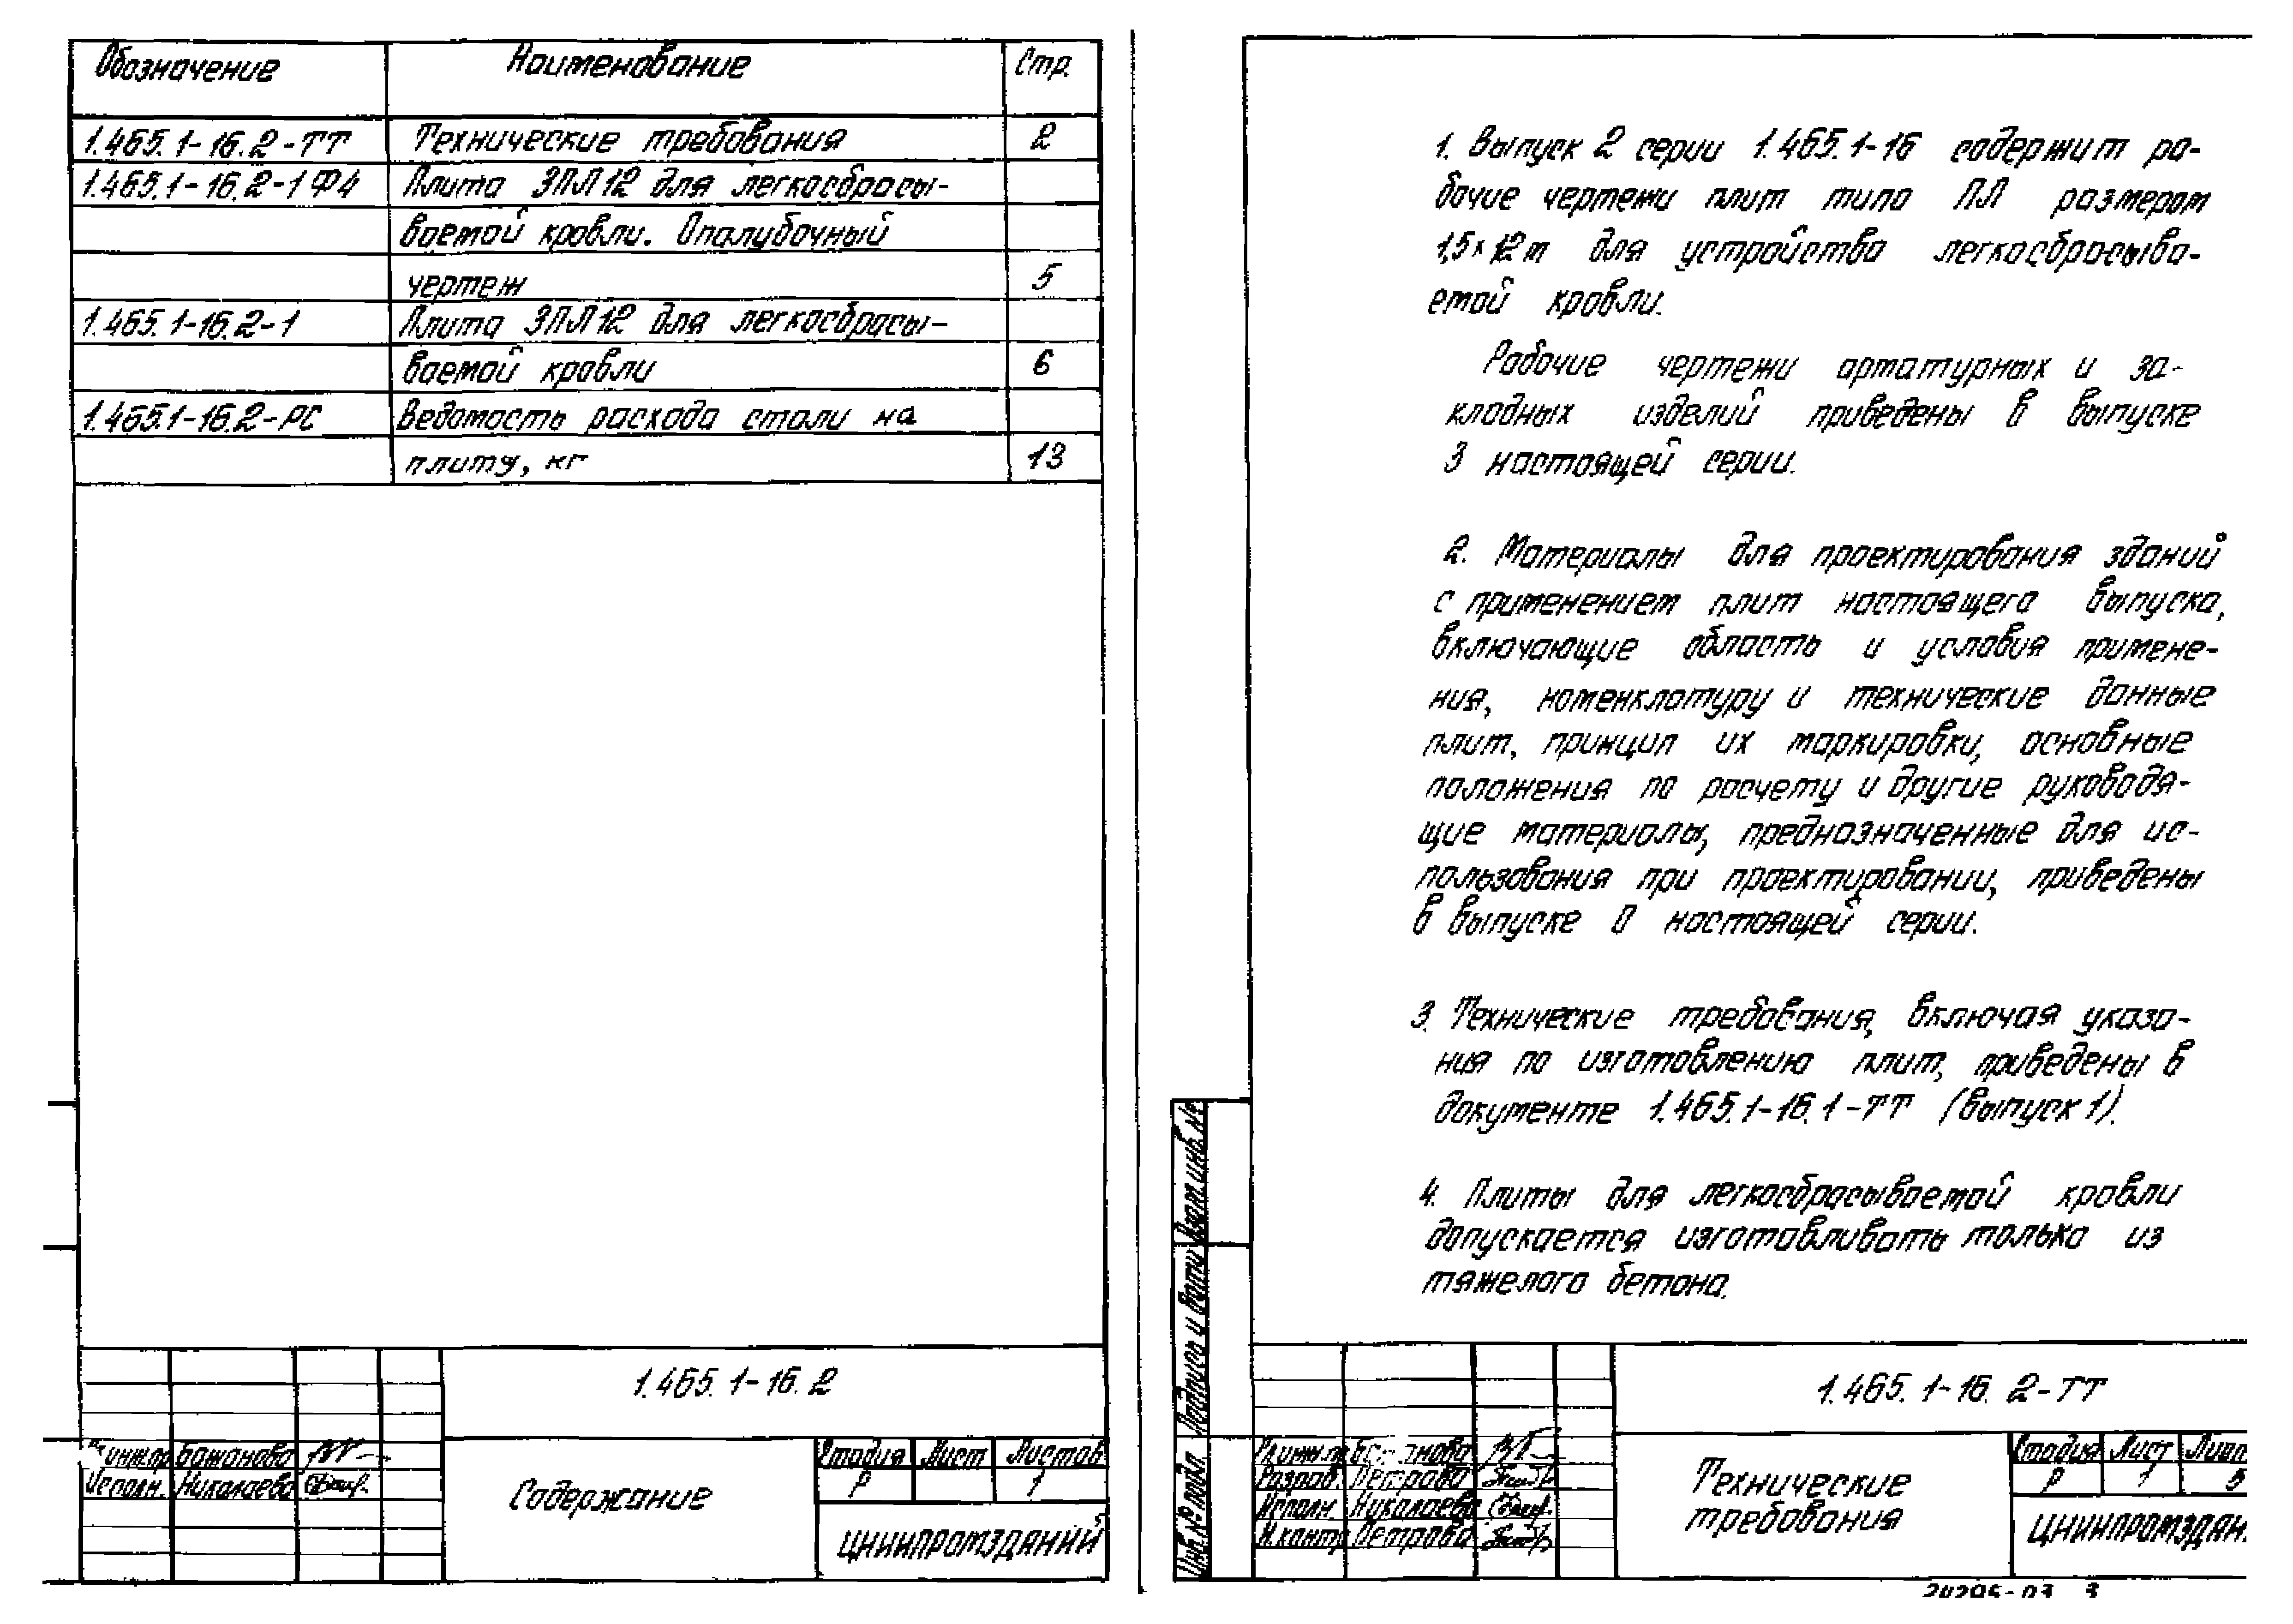 Обозначение Наименование Стр.
1.465.1-16.2-ТТ Технические требования 2
1.465.1-16.2-1Ф4 Плита 3ПЛ12 для легкосбрасы-
ваемой кровли. Опалубочный
чертеж 5
1.465.1-16.2-1 Плита 3ПЛ12 для легкосбрасы-
ваемой кровли 6
1.465.1-16.2-РС Ведомость расхода стали на
плиту, кг 13
1.465.1-16.2
Стадия Лист Листов
Р 1
Бажанова
Исполн. Николаева
Содержание
ЦНИИПРОМЗДАНИЙ
1. Выпуск 2 серии 1.465.1-16 содержит ра-
бочие чертежи плит типа ПЛ размером
1,5×12м для устройства легкосбрасыва-
емой кровли.
Рабочие чертежи арматурных и за-
кладных изделий приведены в выпуске
3 настоящей серии.
2. Материалы для проектирования зданий
с применением плит настоящего выпуска,
включающие область и условия примене-
ния, номенклатуру и технические данные
плит, принцип их маркировки, основные
положения по расчету и другие руководя-
щие материалы, предназначенные для ис-
пользования при проектировании, приведены
в выпуске 0 настоящей серии.
3. Технические требования, включая указа-
ния по изготовлению плит, приведены в
документе 1.465.1-16.1-ТТ (выпуск 1).
4. Плиты для легкосбрасываемой кровли
допускается изготавливать только из
тяжелого бетона.
Взам.инв.№
Подпись и дата
Инв.№ подл.
1.465.1-16.2-ТТ
Стадия Лист
Р 1 5
Разраб. Петрова
Исполн. Николаева
Н.контр. Петрова
Технические
требования
ЦНИИПРОМЗДАН